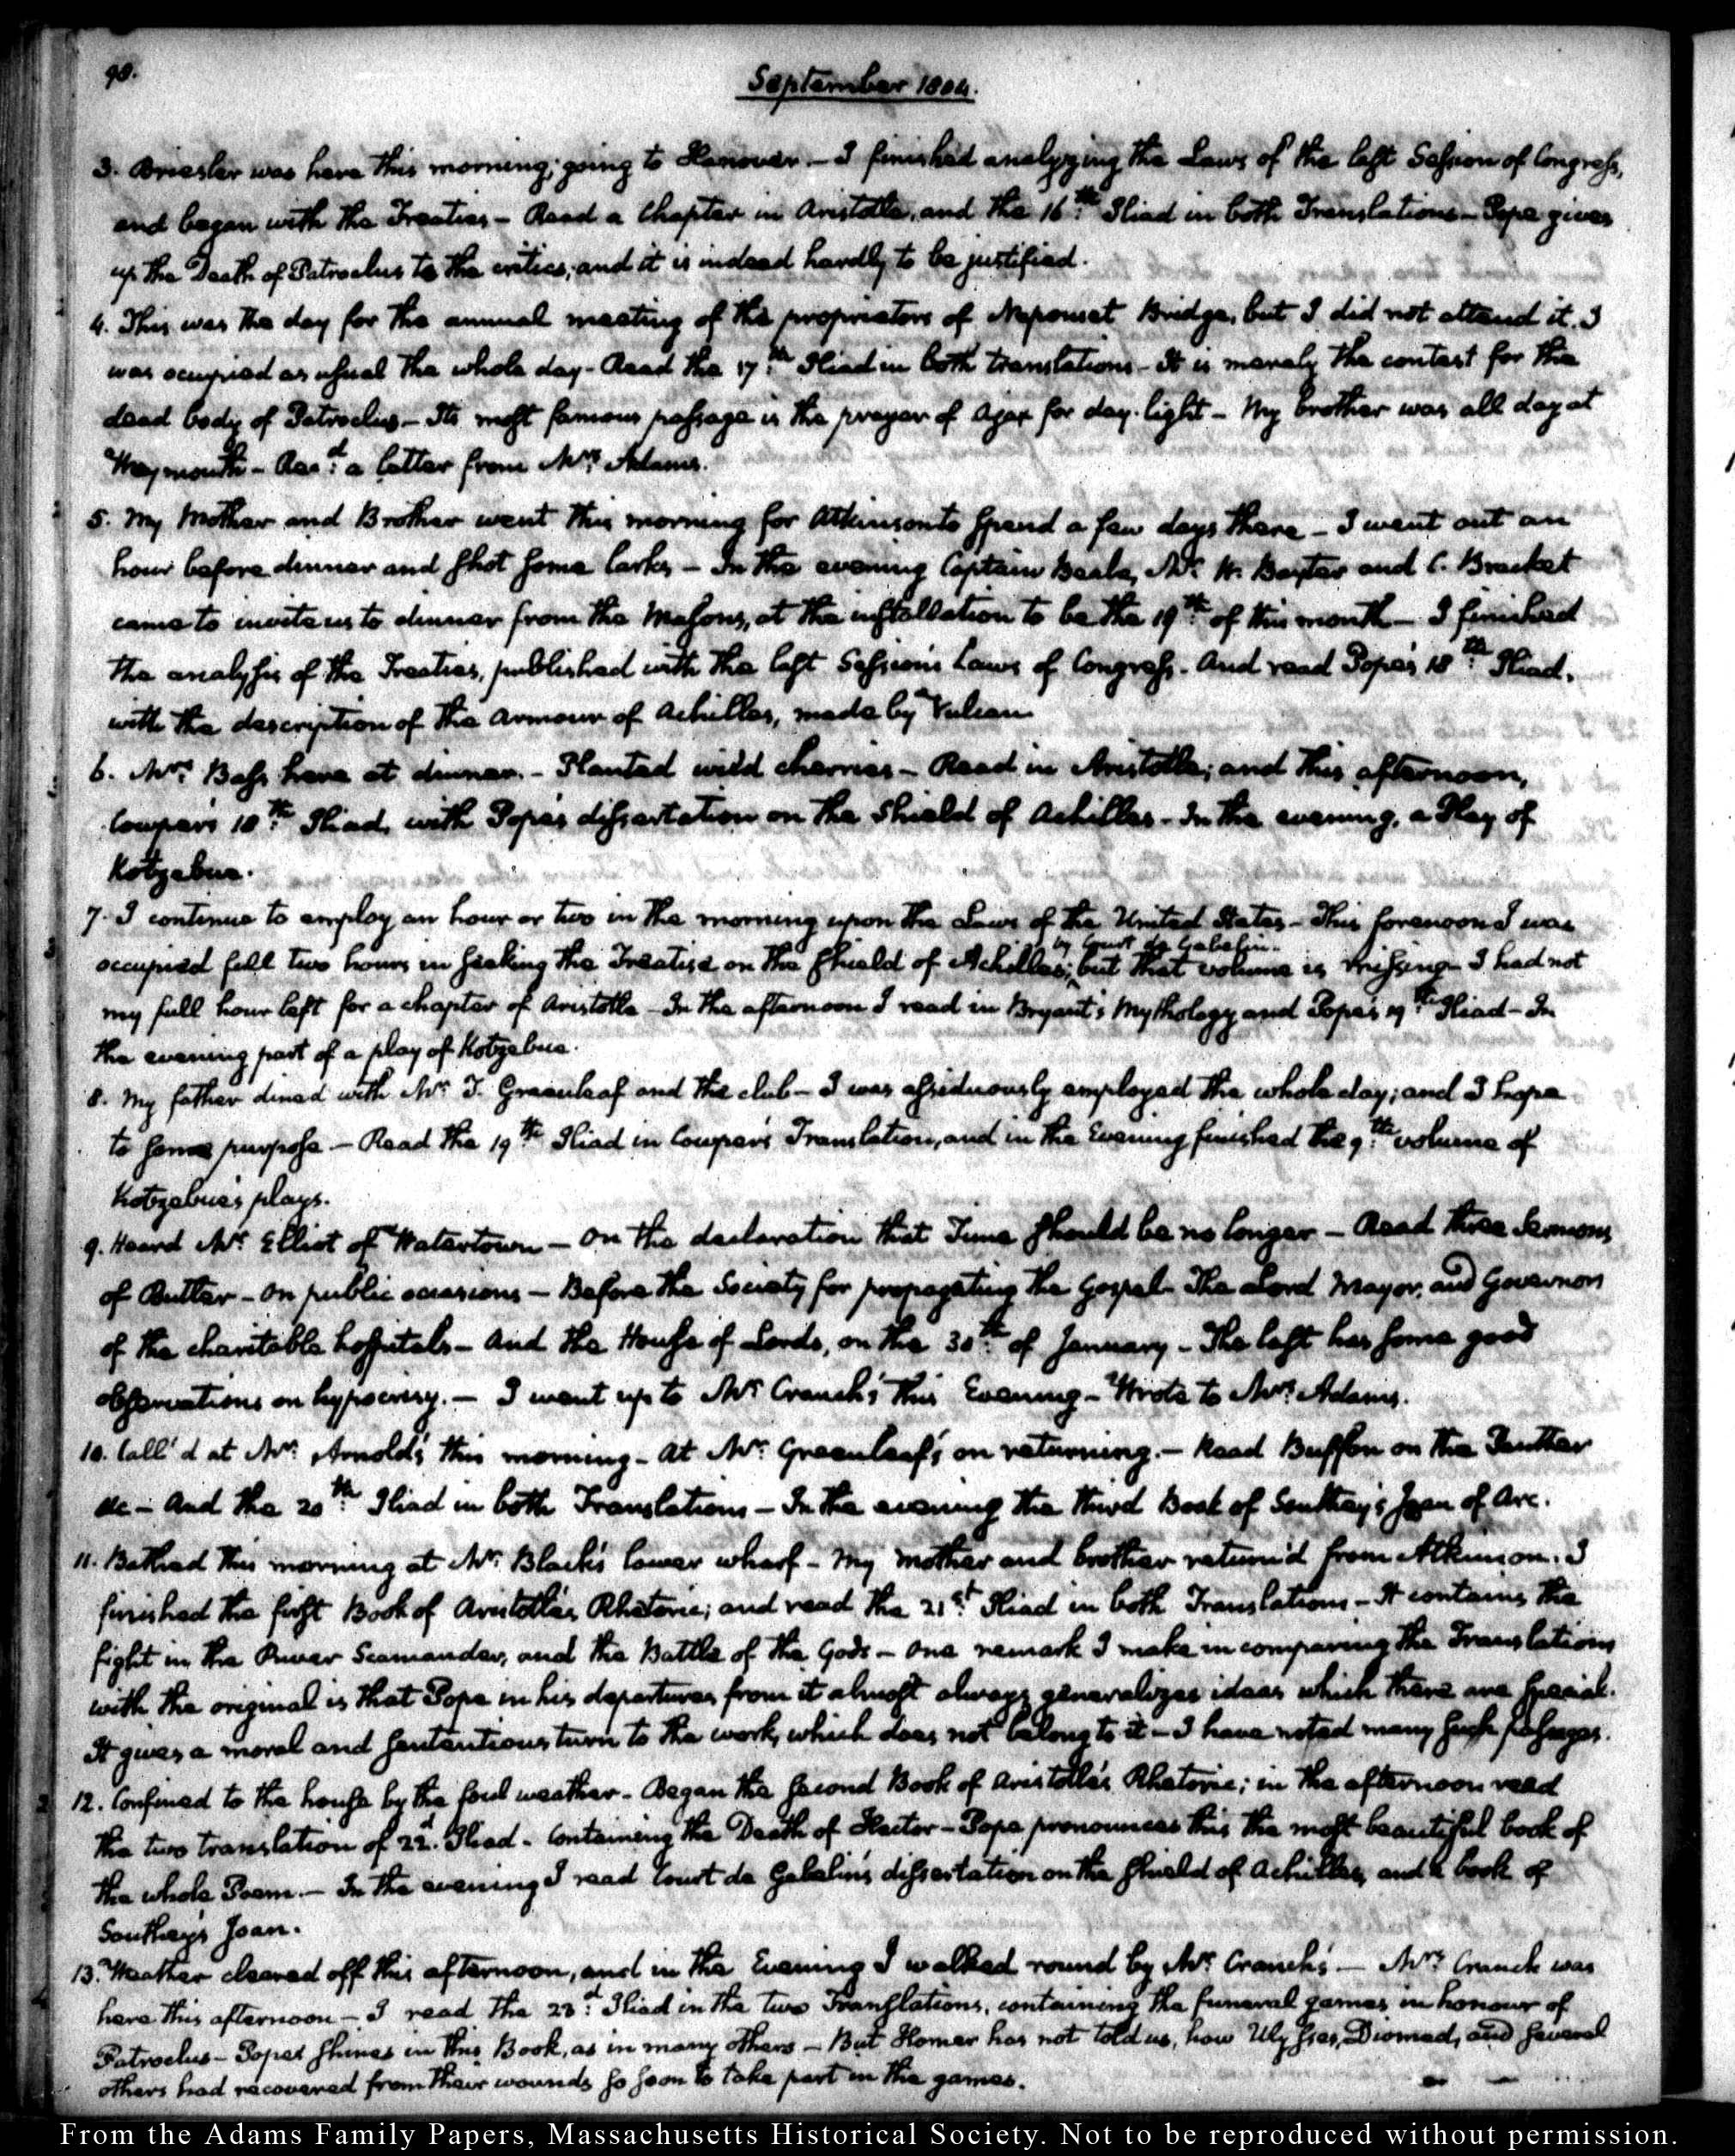 90.
September 1804.
3. Briesler was here this morning; going to Hanover. – I finished analyzing the Laws of the last Session of Congress,
and began with the Treaties – Read a Chapter in Aristotle, and the 16th Iliad in both Translations – Pope gives
up the Death of Patroclus to the critics, and it is indeed hardly to be justified.
4. This was the day for the annual meeting of the proprietors of Neponset Bridge, but I did not attend it. I
was occupied as usual the whole day – Read the 17th Iliad in both translations – It is merely the contest for the
dead body of Patroclus – Its most famous passage is the prayer of Ajax for day-light – My brother was all day at
Weymouth – Recd a letter from Mrs Adams.
5. My Mother and Brother went this morning for Atkinson to spend a few days there – I went out an
hour before dinner and shot some larks – In the evening Captain Beale, Mr W. Baxter and C. Bracket
came to invite us to dinner from the Masons, at the installation to be the 19th of this month – I finished
the analysis of the Treaties, published with the last Session's Laws of Congress. And read Pope's 18th Iliad,
with the description of the Armour of Achilles, made by Vulcan
6. Mrs Bass here at dinner. – Planted wild cherries – Read in Aristotle; and this afternoon,
Cowper's 18th Iliad, with Pope's dissertation on the Shield of Achilles – In the evening, a Play of
Kotzebue.
7. I continue to employ an hour or two in the morning upon the Laws of the United States – This forenoon I was
by Court de Gebelin.
occupied full two hours in seeking the Treatise on the shield of Achilles; but that volume is missing – I had not
my full hour left for a chapter of Aristotle – In the afternoon I read in Bryant's Mythology and Pope's 19th Iliad – In
the evening part of a play of Kotzebue.
8. My father dined with Mr T. Greenleaf and the club – I was assiduously employed the whole day; and I hope
to some purpose – Read the 19th Iliad in Cowper's Translation, and in the Evening finished the 9th volume of
Kotzebue's plays.
9. Heard Mr Elliot of Watertown – On the declaration that Time should be no longer – Read three Sermons
of Butler – on public occasions – Before the Society for propagating the Gospel – The Lord Mayor, and Governors
of the charitable hospitals – And the House of Lords, on the 30th of January – The last has some good
observations on hypocrisy. – I went up to Mr Cranch's this Evening – Wrote to Mrs Adams.
10. Call'd at Mr Arnold's this morning – At Mr Greenleaf's on returning. – Read Buffon on the Panther
&c – And the 20th Iliad in both Translations – In the evening the third Book of Southey's Joan of Arc.
11. Bathed this morning at Mr Black's lower wharf – My mother and brother return'd from Atkinson. I
finished the first Book of Aristotle's Rhetoric; and read the 21st Iliad in both Translations – It contains the
fight in the River Scamander, and the Battle of the Gods – One remark I make in comparing the Translations
with the original is that Pope in his departures from it almost always generalizes ideas which there are special.
It gives a moral and sententious turn to the work, which does not belong to it – I have noted many such passages.
12. Confined to the house by the foul weather – Began the second Book of Aristotle's Rhetoric; in the afternoon read
the two translation of 22d Iliad – Containing the Death of Hector – Pope pronounces this the most beautiful book of
the whole Poem. – In the evening I read Court de Gebelin's dissertation on the shield of Achilles, and a book of
Southey's Joan.
13. Weather cleared off this afternoon, and in the Evening I walked round by Mr Cranch's – Mrs Cranch was
here this afternoon – I read the 23d Iliad in the two Translations, containing the funeral games in honour of
Patroclus – Pope shines in this Book, as in many others – But Homer has not told us, how Ulysses, Diomed, and several
others had recovered from their wounds so soon to take part in the games.
From the Adams Family Papers, Massachusetts Historical Society. Not to be reproduced without permission.